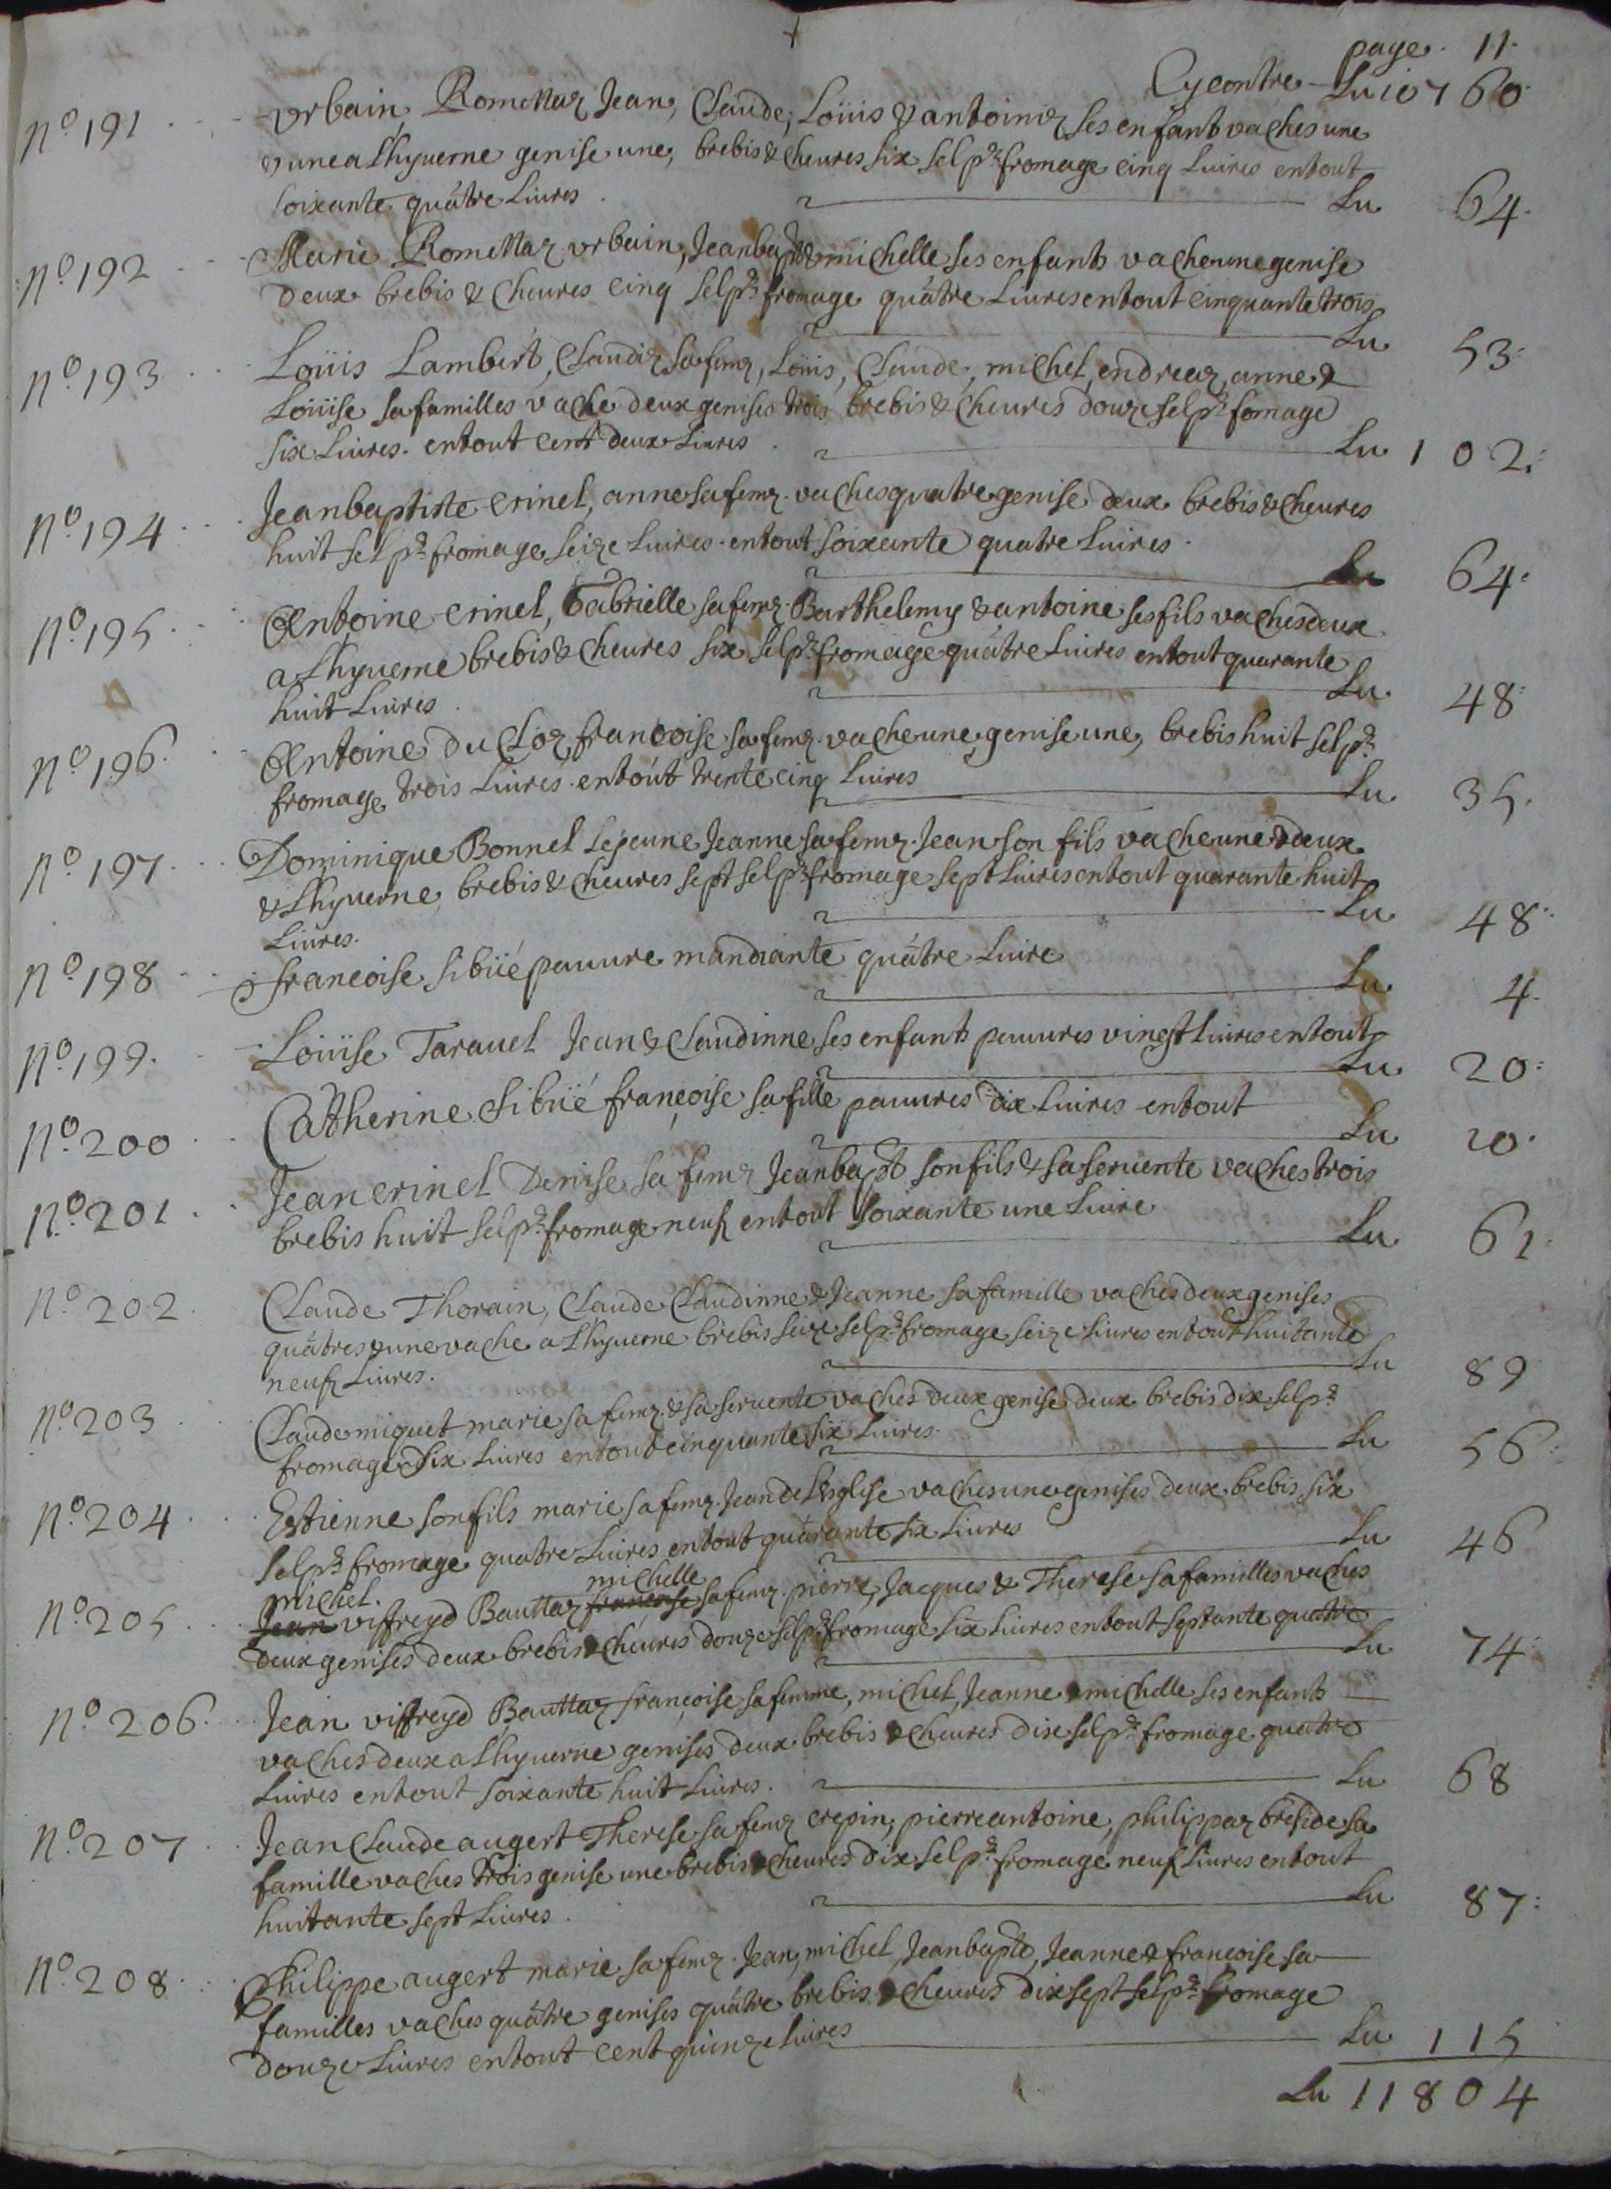 page. 11.
Cy contre Lu 10760
N.o 191 Urbain Romettaz Jean, Claude, Loüis & antoine ses enfant vaches une
& une a Lhyuerne genise une, brebis & cheures six sel pr fromage cinq Liures entout
soixante quâtre Liures Lu 64.
N.o 192 Marie Romettaz urbain, Jeanbapt & michelle ses enfants vache une genise
deux brebis & cheures cinq sel pr fromage quâtre Liures entout cinquante trois
Lu 53.
N.o 193 Loüis Lambert, Claudaz sa femz, Loüis, Claude, michel, endreaz, anne &
Loüise sa familles vache deux genises trois brebis & cheures douze sel pr fomage
six Liures. entout cent deux Liures Lu 102.
N.o 194 Jeanbaptiste crinel, anne sa femz. vaches quatre genise deux brebis & cheures
huit sel pr fromage seize Liures. entout soixcante quatre Liures.
Lu 64.
N.o 195 Antoine crinel, Gabrielle sa femz. Barthelemy & antoine ses fils vaches deux
a Lhyuerne brebis & cheures six sel pr fromage quâtre Liures entout quarante
huit Liures. Lu 48
N.o 196 Antoine du Cloz francoise sa femz. vache une genise une, brebis huit sel pr
fromage trois Liures. entout trente cinq Liures Lu. 35.
N.o 197 Dominique Bonnel Lejeune Jeanne sa femz. Jean son fils vache une & deux
& Lhyuerne brebis & cheures sept sel pr fromage sept Liures entout quarante huit
Liures. Lu 48
N.o 198 francoise sibüé pauure mandiante quâtre Liure Lu. 4.
N.o 199. Loüise Tarauel Jean & Claudinne ses enfants pauures vingt Liures entout
Lu 20
N.o 200 Catherine Sibüé françoise sa fille pauures dix Liures entout
Lu 10.
N.o 201 Jean crinel Denise sa femz Jeanbapt son fils & sa seruente vaches trois
brebis huit sel pr fromage neuf entout soixante une Liure Lu 61.
N.o 202 Claude Thorain, Claude Claudinne & Jeanne sa famille vaches deux genises
quâtres & une vache a Lhyuerne brebis seize sel pr fromage seize Liures entout huitante
neuf Liures. Lu 89
N.o 203 Claude miquet marie sa femz. & sa seruente vaches deux genise deux brebis dix sel pr
fromage six Liures entout cinquante six Liures. Lu 56
N.o 204 Estienne son fils marie sa femz. Jean de Leglise vaches une genises deux brebis six
sel pr fromage quatre Liures entout quarante six Liures Lu 46
michel. michelle
N.o 205 Jean viffreyd Bauttaz francoise sa femz. pierre, Jacques & Therese sa familles vaches
deux genises deux brebis & cheures douze sel pr fromage six Liures entout septante quatre
Lu 74
N.o 206. Jean viffreyd Bauttaz françoise sa femme, michel, Jeanne & michelle ses enfants
vaches deux a Lhyuerne genises deux brebis & cheures dix sel pr fromage quatre
Liures entout soixante huit Liures. Lu 68
N.o 207 Jean Claude augert Therese sa femz crepin, pierre antoine, philippaz breside sa
famille vaches trois genise une brebis & cheures dix sel pr fromage neuf Liures entout
huitante sept Liures. Lu 87
N.o 208 Philippe augert marie sa femz. Jean, michel, Jeanbapte, Jeanne & francoise sa
familles vaches quâtre genises quâtre brebis & cheures dix sept sel pr fromage
douze Liures entout cent quinze Liures Lu 115
Lu 11804